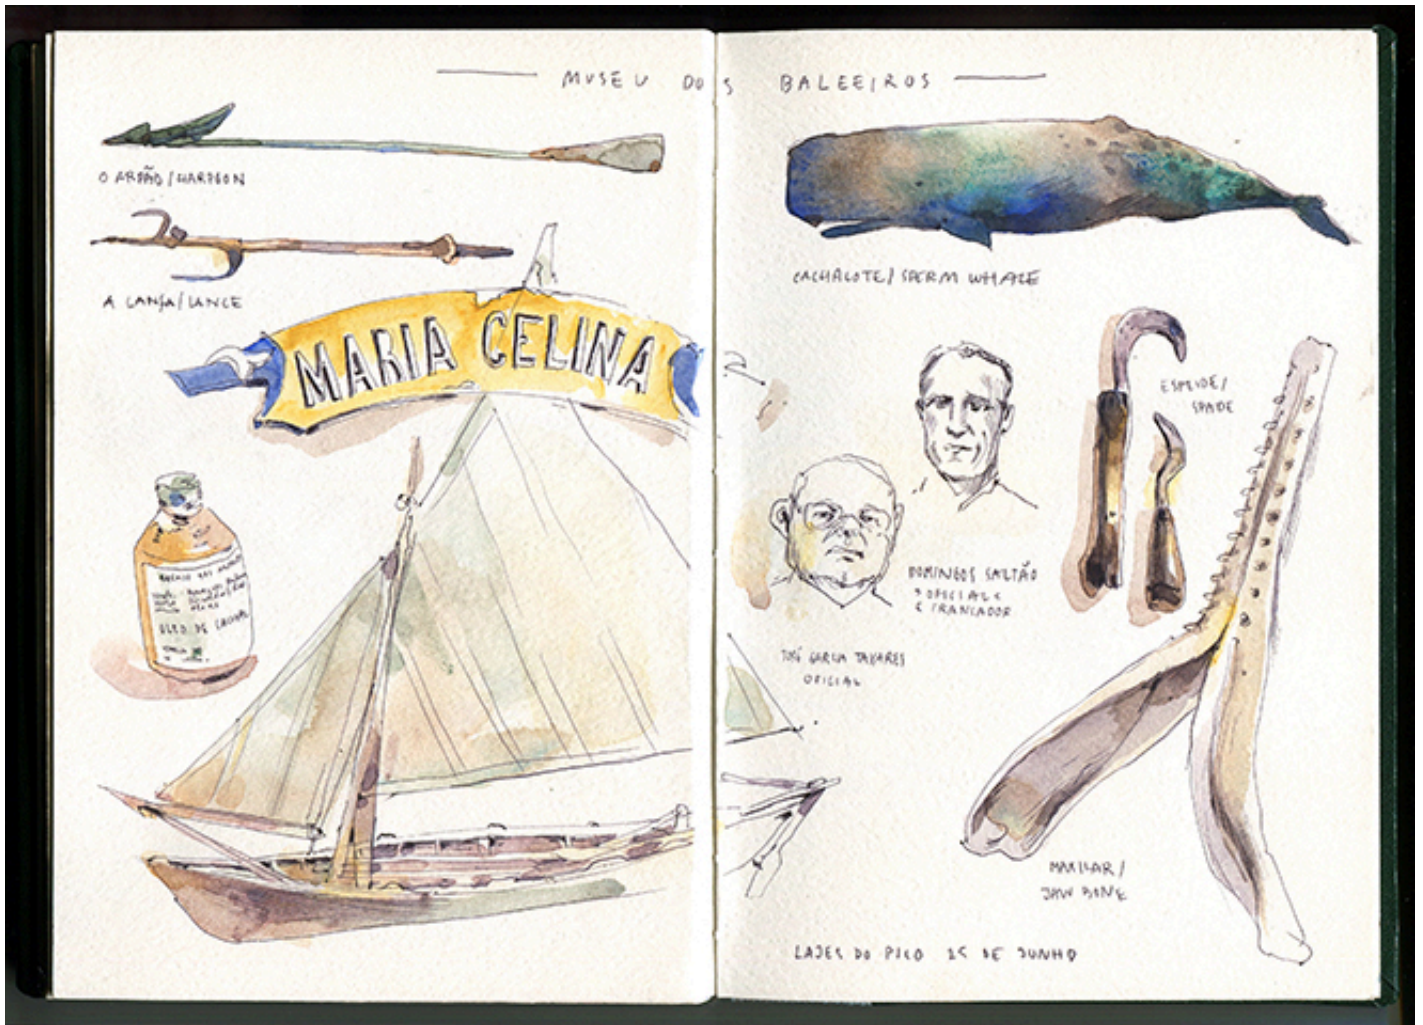 MUSEU DOS BALEEIROS
O ARPÃO / HARPOON
A LANÇA / LANCE
MARIA CELINA
ÓLEO DE
CACHALOTE / SPERM WHALE
ESPEIDE /
SPADE
DOMINGOS
OFICIAL
E TRANCADOR
JOSÉ GARCIA TAVARES
OFICIAL
MAXILAR /
JAW BONE
LAJES DO PICO 25 DE JUNHO